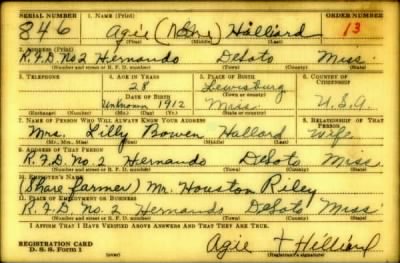 SERIAL NUMBER 1. NAME (Print) ORDER NUMBER
846 Agie (None) Halliard 13
(First) (Middle) (Last)
2. ADDRESS (Print)
R.F.D. No 2 Hernando DeSoto Miss.
(Number and street or R. F. D. number) (Town) (County) (State)
3. TELEPHONE 4. AGE IN YEARS 5. PLACE OF BIRTH 6. COUNTRY OF CITIZENSHIP
28 Lewisburg
DATE OF BIRTH (Town or county)
Unknown 1912 Miss. U.S.A.
(Exchange) (Number) (Mo.) (Day) (Yr.) (State or country)
7. NAME OF PERSON WHO WILL ALWAYS KNOW YOUR ADDRESS 8. RELATIONSHIP OF THAT PERSON
Mrs. Lilly Bowen Hallard Wife
(Mr., Mrs., Miss) (First) (Middle) (Last)
9. ADDRESS OF THAT PERSON
R.F.D. No. 2 Hernando DeSoto Miss
(Number and street or R. F. D. number) (Town) (County) (State)
10. EMPLOYER'S NAME
(Share farmer) Mr. Houston Riley
11. PLACE OF EMPLOYMENT OR BUSINESS
R.F.D No. 2 Hernando DeSoto Miss.
(Number and street or R. F. D. number) (Town) (County) (State)
I AFFIRM THAT I HAVE VERIFIED ABOVE ANSWERS AND THAT THEY ARE TRUE.
REGISTRATION CARD
D. S. S. Form 1 (over) Agie + Hilliard
(Registrant's signature)